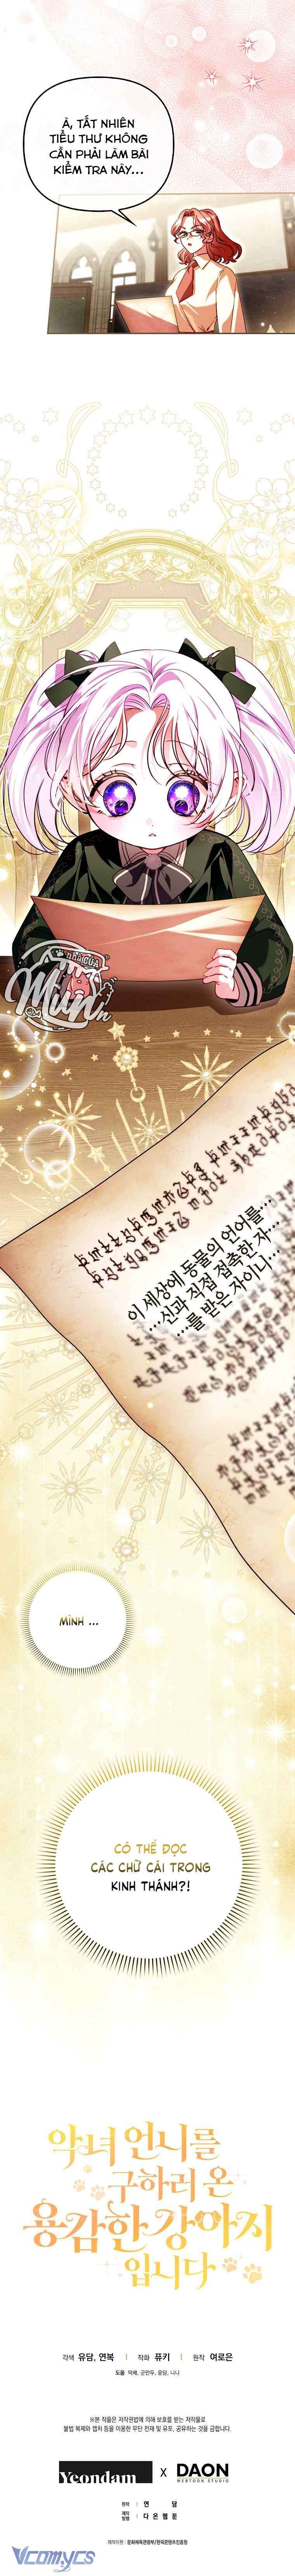 À, TẤT NHIÊN
TIỂU THƯ KHÔNG
CẦN PHẢI LÀM BÀI
KIỂM TRA NÀY...
NHÀ CỦA
Miyan
이 세상에 동물의 언어를...
...신과 직접 접촉한 자...
...를 받은 자이니...
MÌNH ...
CÓ THỂ ĐỌC
CÁC CHỮ CÁI TRONG
KINH THÁNH?!
악녀 언니를
구하러 온
용감한 강아지
입니다
각색 유담, 연복 | 작화 퓨키 | 원작 여로은
※본 작품은 저작권법에 의해 보호를 받는 저작물로
불법 복제와 캡처 등을 이용한 무단 전재 및 유포, 공유하는 것을 금합니다.
Yeondam X DAON
WEBTOON STUDIO
원작 | 연 담
제작 발행 | 다 온 웹 툰
제작지원 : 문화체육관광부/한국콘텐츠진흥원
Vcomycs